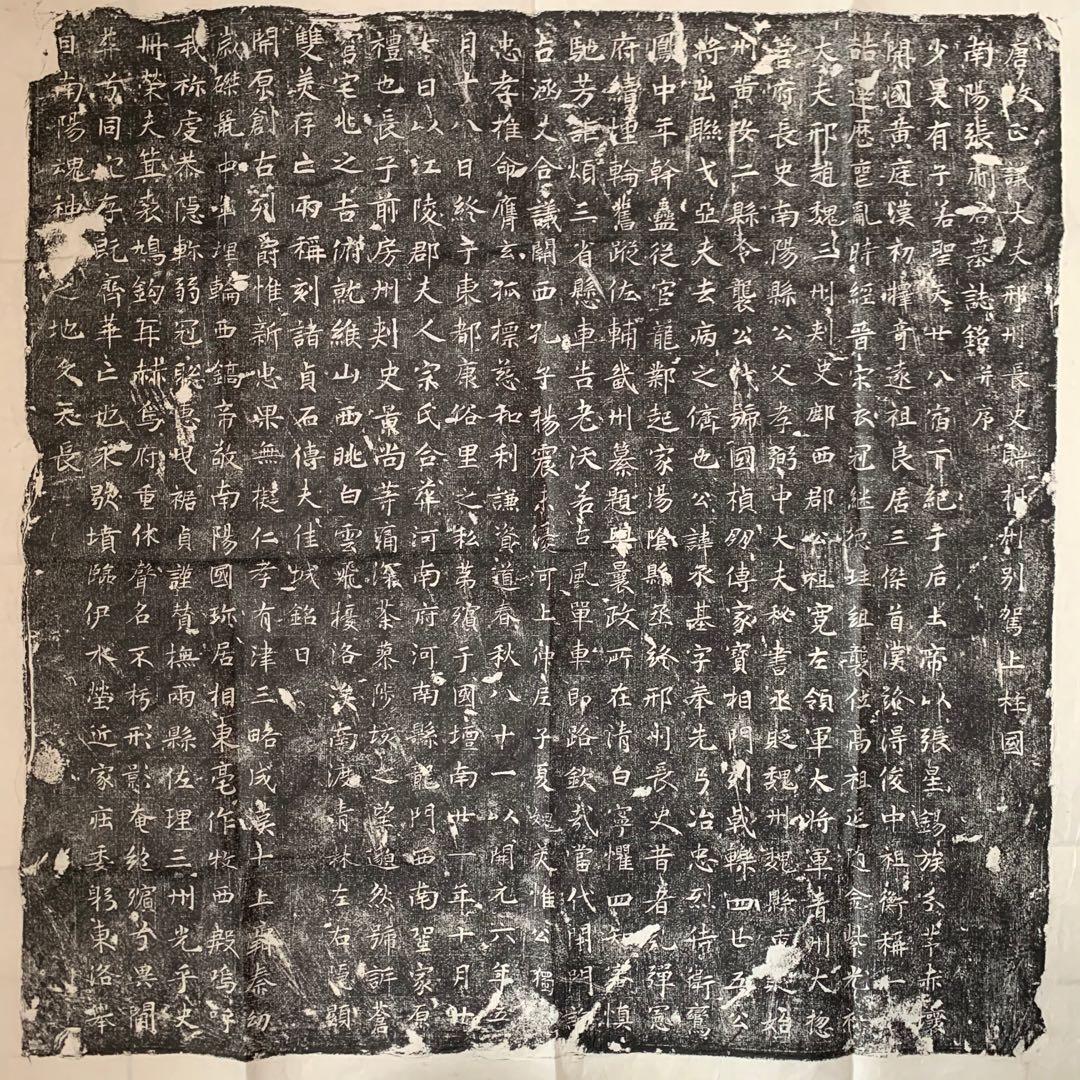 唐故正議大夫邢州長史聃杭州別駕上柱國
南陽張府君墓誌銘并序
少昊有子若聖天廿八宿下紀乎后土帝以張星錫族分茅赤
開國黃庭漢初擇奇遂祖良居三傑首漢詮得俊中祖衡稱一
詰運歷喪亂時經晉宋衣冠繼德珪組襲位高祖延隨金紫光祿
大夫邢趙魏三州刺史郿西郡公祖寬左領軍大將軍青州大揔
管府長史南陽縣公父孝弼中大夫秘書丞貶魏州魏縣
州黃安二縣令襲公代號國楨劒傳家寶相門列戟轢四世五公
將出聯戈亞夫去病之儕也公諱承基字奉先弓冶忠烈侍衛鸞
鳳中年幹蠱從官龍鄰起家湯陰縣丞終邢州長史昔者孔彈憲
府續埋輪舊蹤佐輔畿州纂題輿曩政所在清白寧懼四知直慎
馳芳詎煩三省懸車告老沃若占風單車即路欽哉當代開門許
占涵丈合議關西孔子楊震未淩河上仲尼子夏媿美惟公獨
忠孝推命膺玄孤摽慈和利謙資道春秋八十一以開元六年五
月十八日終于東都康俗里之私第殯于國壇南廿一年十月廿
七日以江陵郡夫人宗氏合葬河南府河南縣龍門西南塋家原
禮也長子前房州刺史景尚等痛深荼蓼陟垓之望隨然號訴蒼
穹宅兆之吉俯就維山西眺白雲飛接洛洨南渡青林左右隱顯
雙美存亡兩稱刻諸貞石傳夫佳城銘曰
開原創古列爵惟新忠果無擬仁孝有津三略成漢上上辭秦幼
歲磔鼠中年埋輪西鎬帝敬南陽國珎居相東亳作牧西殿嗚呼
我稱虔恭隱軫弱冠聰惠曳裾貞謹贊撫兩縣佐理三州光乎史
冊榮夫箕裘鳩鈎再赫鳥府重休聲名不朽形影奄絕殯兮異閟
葬兮同北存既齊華亡也永歇墳臨伊水塋近家庄委躬東洛本
自南陽魂神之地久天長